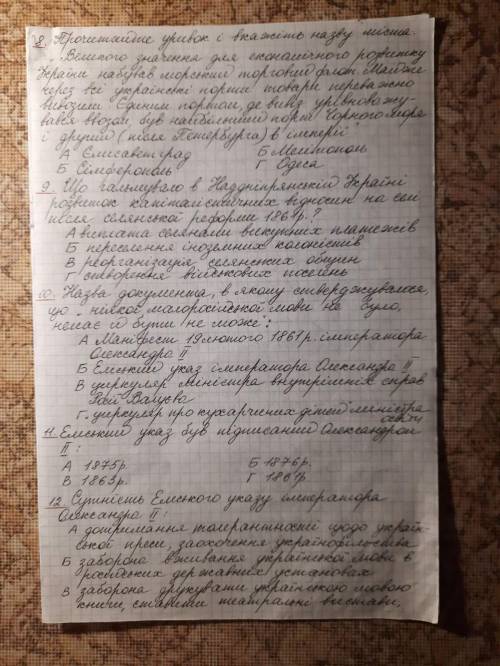 8. Прочитайте уривок і вкажіть назву міста.
„Великого значення для економічного розвитку
України набував морський торговий флот. Майже
через всі українські порти товари переважно
вивозили. Єдиним портом, де вивіз урівноважу-
вався ввозом, був найбільший порт Чорного моря
і другий (після Петербурга) в імперії"
А Єлисаветград Б Мелітополь
Б Сімферополь Г Одеса
9. Що гальмувало в Наддніпрянській Україні
розвиток капіталістичних відносин на селі
після селянської реформи 1861р.?
А виплата селянами викупних платежів
Б переселення іноземних колоністів
В реорганізація селянських общин
Г створення військових поселень
10. Назва документа, в якому стверджувалося,
що „ніякої малоросійської мови не було,
немає й бути не може":
А Маніфест 19 лютого 1861р. імператора
Олександра II
Б Емський указ імператора Олександра II
В циркуляр міністра внутрішніх справ
Валуєва
Г циркуляр про кухарчиних дітей міністра
освіти
11. Емський указ був підписаний Олександром
II:
А 1875р. Б 1876р.
В 1863р. Г 1861р
12. Сутність Емського указу імператора
Олександра II:
А дотримання толерантності щодо україн-
ської преси, заохочення українофільства
Б заборона вживання української мови в
російських державних установах
В заборона друкувати українською мовою
книги, ставити театральні вистави,